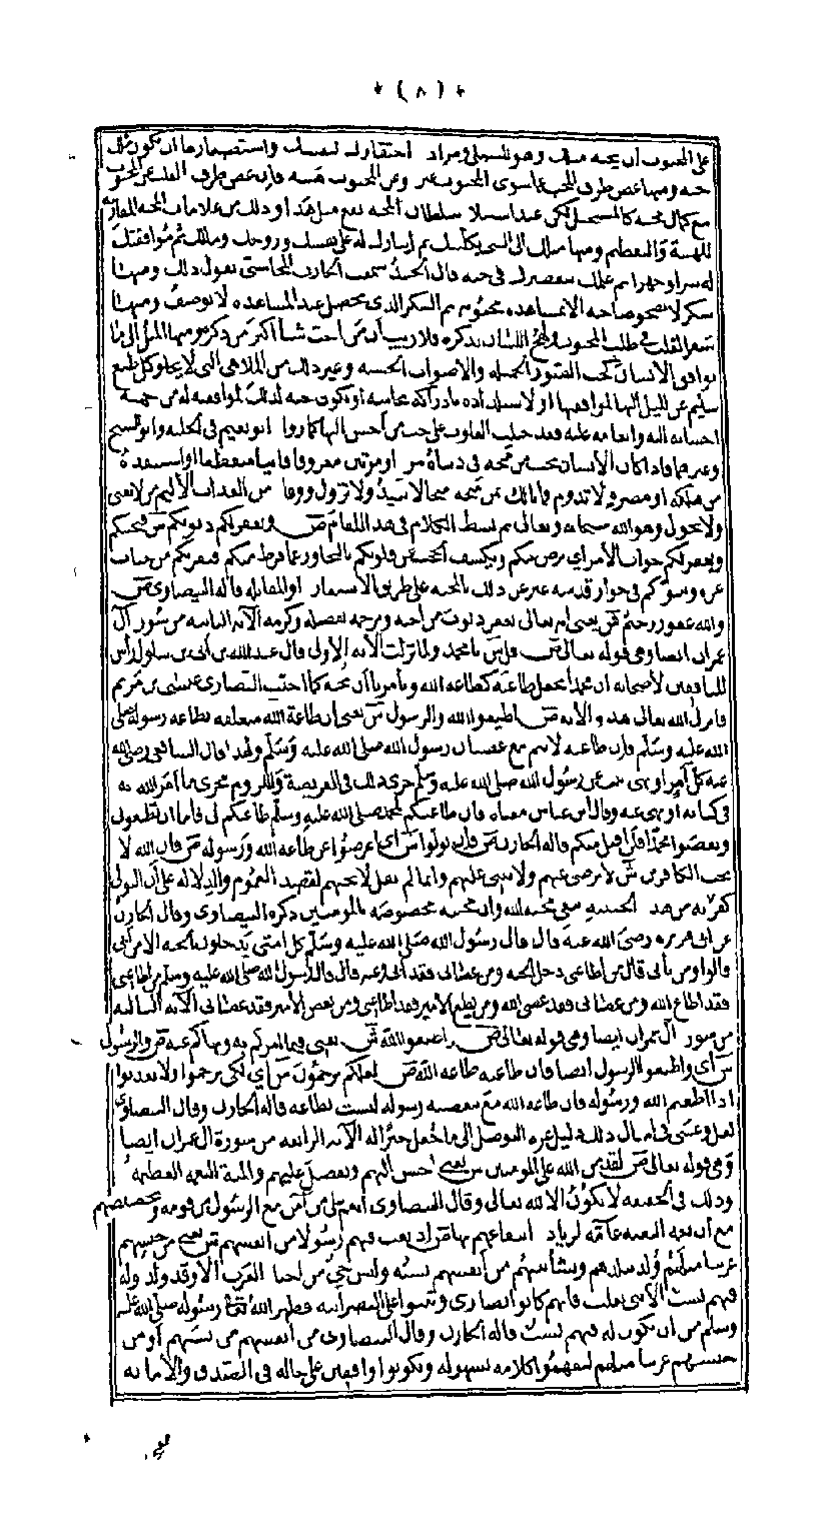 * (٨) *
على المحبوب أن يحبه مثلك وهو السبلي ومراد احتقارك لنفسك واستصغارها أن يكون مثلك
حبه ومنها غض طرف المحب عما سوى المحبوب غيرة وعن المحبوب هيبة فإن غض طرف القلب عن المحبوب
مع كمال محبته كالمستحيل لكن عند استيلاء سلطان المحبة يقع مثل هذا وذلك من علامات المحبة المقارنة
للهيبة والتعظيم ومنها ميلك إلى الشيء بكليتك ثم إيثارك له على نفسك وروحك ومالك ثم موافقتك
له سرا وجهرا ثم علمك بتقصيرك في حبه قال الجنيد سمعت الحارث المحاسبي يقول ذلك ومنها
سكر لا يصحو صاحبه إلا بمشاهدة محبوبه ثم السكر الذي يحصل عند المشاهدة لا يوصف ومنها
سفر القلب في طلب المحبوب ولهج اللسان بذكره فلا ريب أن من أحب شيئا أكثر من ذكره ومنها الميل إلى ما
يوافق الإنسان كحب الصور الجميلة والأصوات الحسنة وغير ذلك من الملاهي التي لا يخلو كل طبع
سليم عن الميل إليها لموافقتها أو لاستلذاذه بإدراكه بحاسة أو يكون حبه لذلك لموافقته له من جهة
إحسانه إليه وإنعامه عليه فقد جبلت القلوب على حب من أحسن إليها كما روا أبو نعيم في الحلية وأبو الشيخ
وغيرهما فإذا كان الإنسان يحب من منحه في دنياه مرة أو مرتين معروفا فانيا منقطعا أو استنقذه
من هلكة أو مضرة لا تدوم فما بالك بمن منحه منحا لا تبيد ولا تزول ووقاه من العذاب الأليم من لا يفنى
ولا يحول وهو الله سبحانه وتعالى ثم بسط الكلام في هذا المقام ص ويغفر لكم ذنوبكم
ويغفر لكم جواب الأمر أي يرض عنكم ويكشف الحجب عن قلوبكم بالتجاوز عما فرط منكم فيقربكم من جناب
عزه ويبوئكم في جوار قدسه عبر عن ذلك بالمحبة على طريق الاستعارة أو المقابلة قاله البيضاوي ص
والله غفور رحيم ش يعني أنه تعالى يغفر ذنوب من أحبه ويرحمه بفضله وكرمه الآية الثانية من سورة آل
عمران أيضا وهي قوله تعالى ص قل ش يا محمد ولما نزلت الآية الأولى قال عبد الله بن أبي بن سلول رأس
المنافقين لأصحابه إن محمدا يجعل طاعته كطاعة الله ويأمرنا أن نحبه كما أحبت النصارى عيسى بن مريم
فأنزل الله تعالى هذه الآية ص أطيعوا الله والرسول ش يعني أن طاعة الله متعلقة بطاعة رسوله صلى
الله عليه وسلم فإن طاعته لا تتم مع عصيان رسول الله صلى الله عليه وسلم ولهذا قال الشافعي رضي الله
عنه كل أمر أو نهي ثبت عن رسول الله صلى الله عليه وسلم جرى ذلك في الفريضة واللزوم مجرى ما أمر الله به
في كتابه أو نهى عنه وقال ابن عباس معناه فإن طاعتكم لمحمد صلى الله عليه وسلم طاعتكم لي فأما أن تطيعوني
وتعصوا محمدا فلن أقبل منكم قاله الخازن ص فإن تولوا ش أي أعرضوا عن طاعة الله ورسوله ص فإن الله لا
يحب الكافرين ش لا يرضى عنهم ولا يثني عليهم وإنما لم يقل لا يحبهم لقصد العموم والدلالة على أن التولي
كفر وإنه من هذه الحيثية ينفي محبة الله وأن محبته مخصوصة بالمؤمنين ذكره البيضاوي وقال الخازن
عن أبي هريرة رضي الله عنه قال قال رسول الله صلى الله عليه وسلم كل أمتي يدخلون الجنة إلا من أبى
قالوا ومن يأبى قال من أطاعني دخل الجنة ومن عصاني فقد أبى وعنه قال قال رسول الله صلى الله عليه وسلم من أطاعني
فقد أطاع الله ومن عصاني فقد عصى الله ومن يطع الأمير فقد أطاعني ومن يعص الأمير فقد عصاني الآية الثالثة
من سورة آل عمران أيضا وهي قوله تعالى ص وأطيعوا الله ش يعني فيما أمركم به ونهاكم عنه ص والرسول
ش أي وأطيعوا الرسول أيضا فإن طاعته طاعة الله ص لعلكم ترحمون ش أي لكي ترحموا ولا تعذبوا
إذا أطعتم الله ورسوله فإن طاعة الله مع معصية رسوله ليست بطاعة قاله الخازن وقال البيضاوي
لعل وعسى في أمثال ذلك دليل عزة التوصل إلى ما جعل خبرا له الآية الرابعة من سورة آل عمران أيضا
وهي قوله تعالى ص لقد من الله على المؤمنين ش يعني أحسن إليهم وتفضل عليهم والمنة النعمة العظيمة
وذلك في الحقيقة لا يكون إلا لله تعالى وقال البيضاوي أنعم على من آمن مع الرسول من قومه وتخصيصهم
مع أن نعمة البعثة عامة لزيادة انتفاعهم بها ص إذ بعث فيهم رسولا من أنفسهم ش يعني من جنسهم
عربيا مثلهم ولد ببلدهم ونشأ بينهم من أنفسهم نسبه وليس حي من أحياء العرب إلا وقد ولدوه وله
فيهم نسب إلا بني تغلب فإنهم كانوا نصارى وثبتوا على النصرانية فطهر الله تعالى رسوله صلى الله عليه
وسلم من أن يكون له فيهم نسب قاله الخازن وقال البيضاوي من أنفسهم من نسبهم أو من
جنسهم عربيا مثلهم ليفهموا كلامه بسهولة ويكونوا واقفين على حاله في الصدق والأمانة